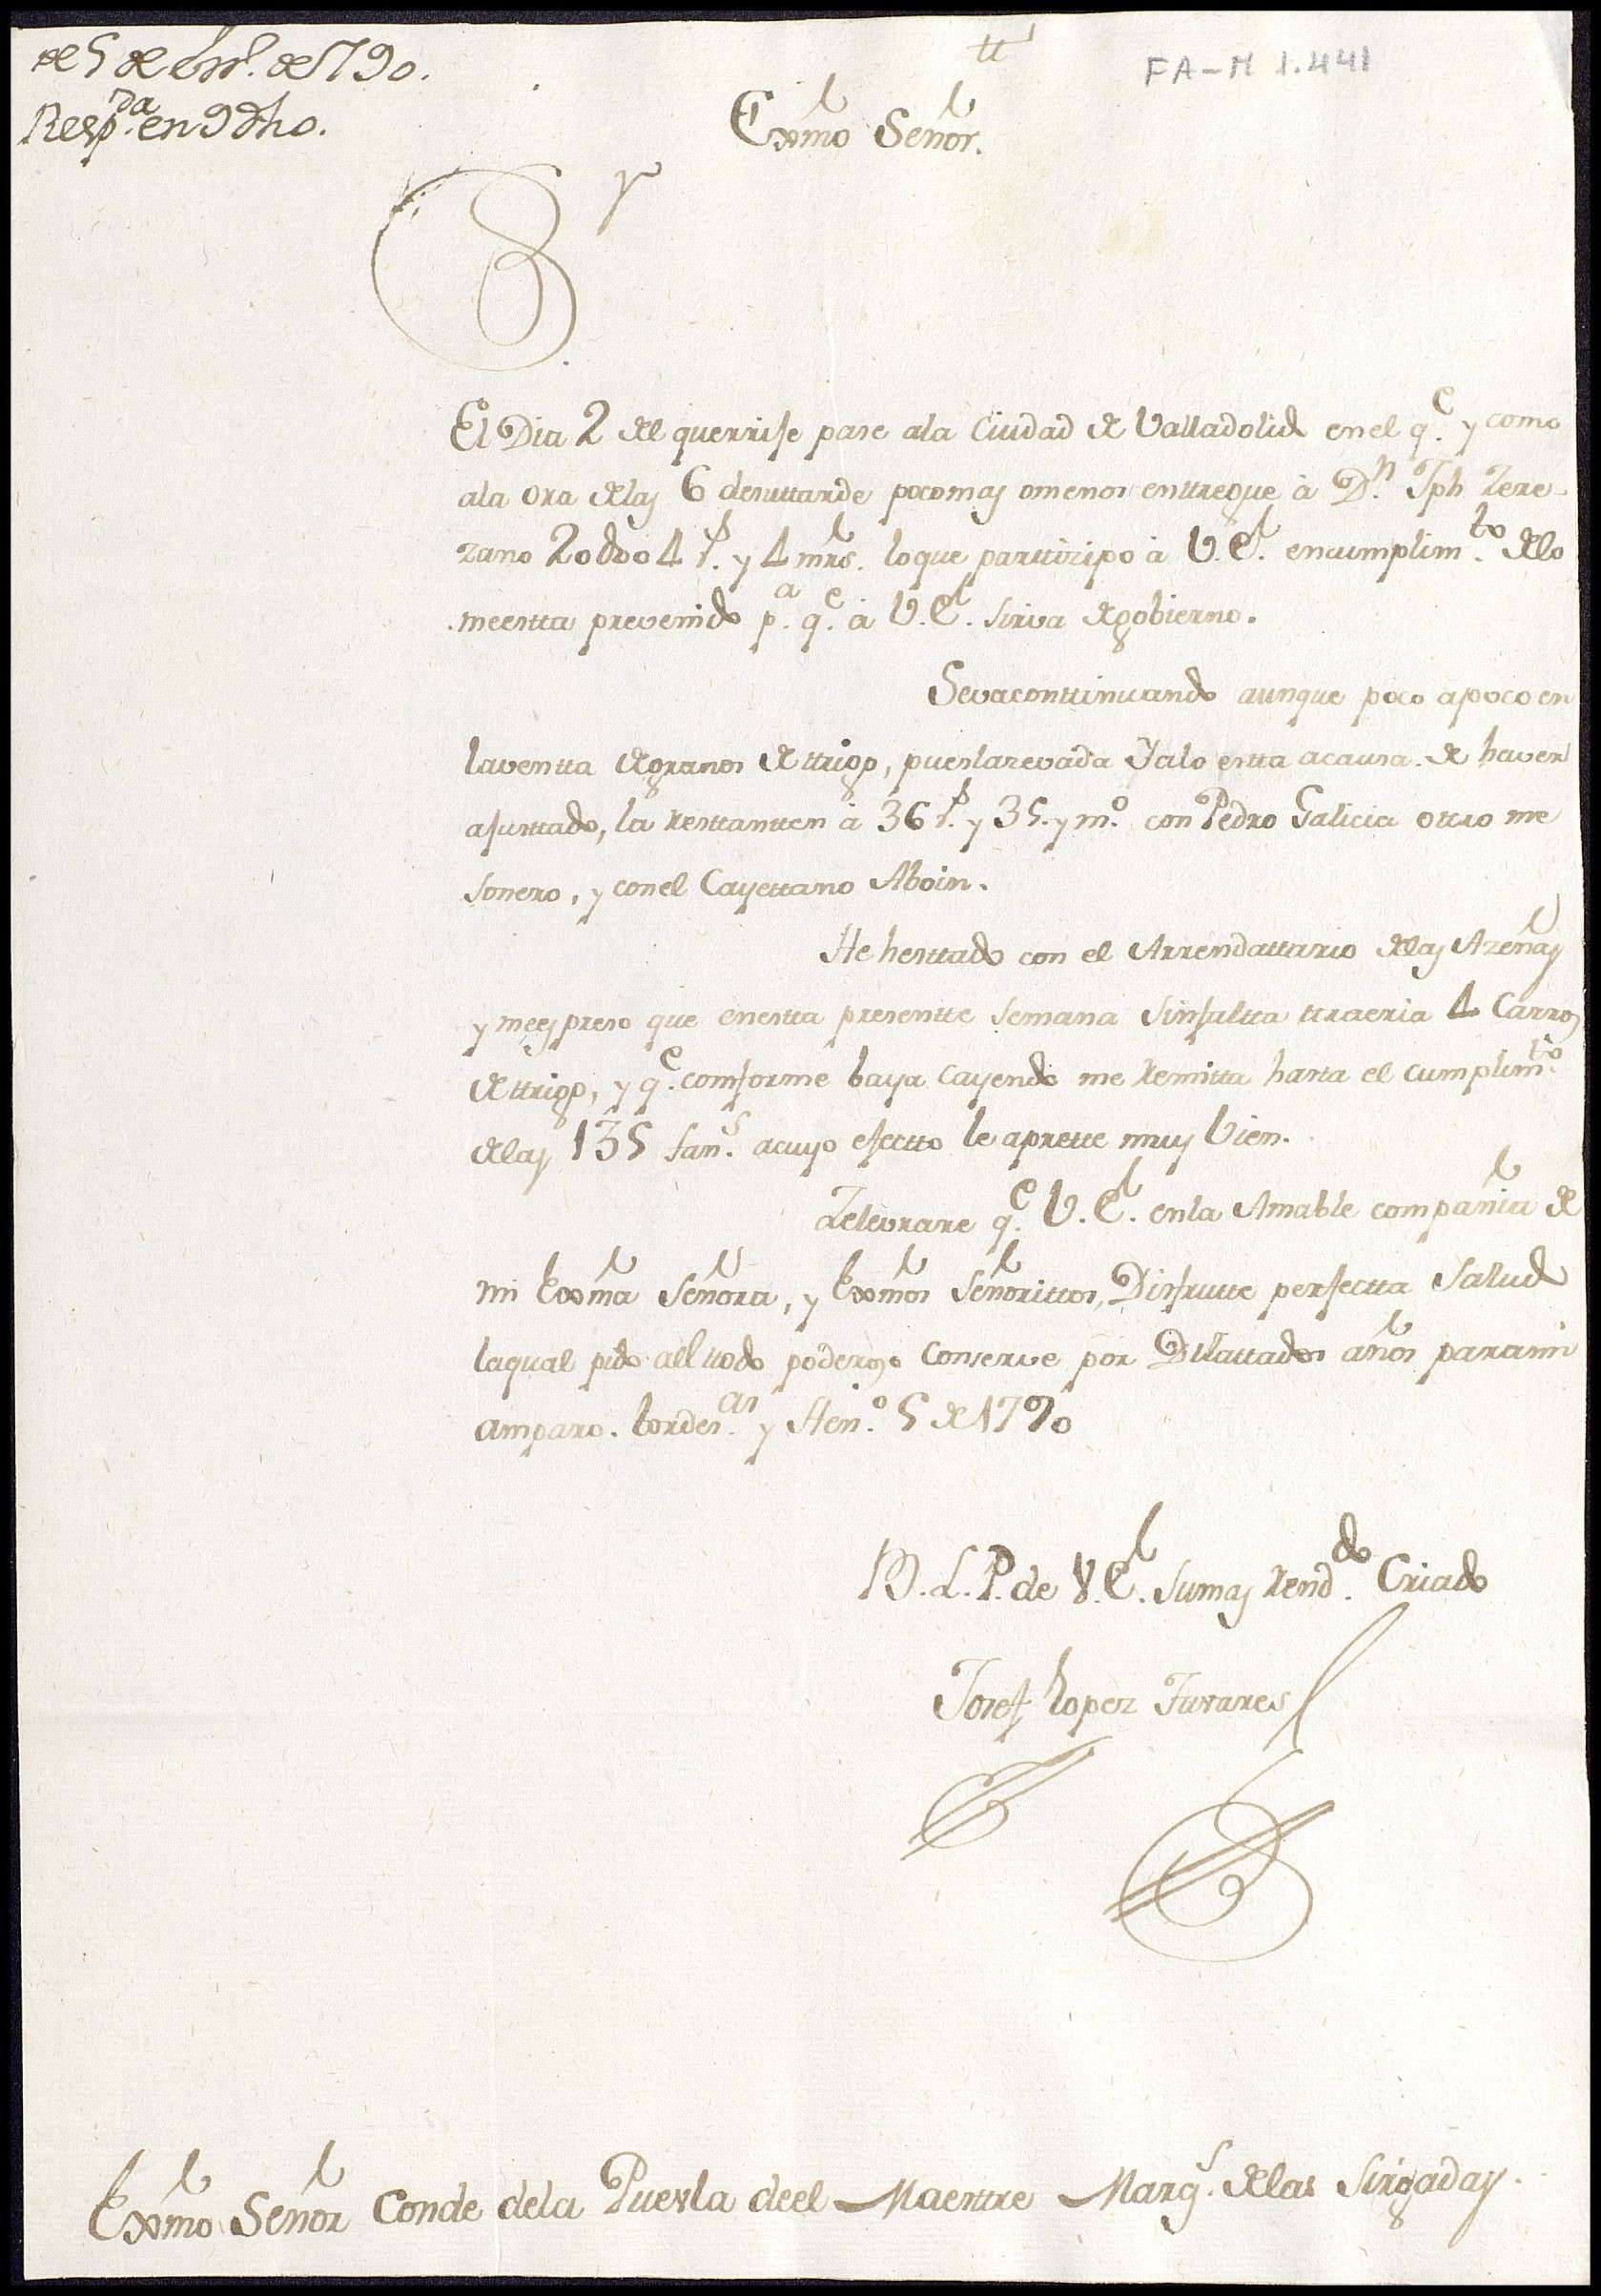 de 5 de Enº. de 1790.
Resp.da en 9 dho.
FA-M 1.441
Exmo Señor.
Sr
El Dia 2 del que rrije pase ala Ciudad de Valladolid en el q.e y como
ala ora delas 6 desuttarde poco mas omenos enttregue à D.n Jph Zere-
zano 20 004 r.s y 4 mrs. lo que parttizipo à V.E. encumplim.to delo
meestta prevenido p.a q.e à V.E. sirva degobierno.
Sevaconttinuando aunque poco apoco en
laventta degranos dettrigo, pueslazevada Yalo estta acausa de haver
ajusttado, la resttantten à 36 r.s y 35. y m.o con Pedro Galicia ottro me
sonero, y conel Cayettano Aboin.
He hesttado con el Arrendattario delas Azeñas
y meespreso que enestta presentte semana sinfaltta ttraeria 4 Carros
dettrigo, y q.e comforme baya cayendo me remitta hasta el cumplim.to
delas 135 fan.s acuyo efectto le aprette muy bien.
Zelevrare q.e V.E. enla Amable compañia de
mi Exma Señora, y Exmos Señorittos, Disfrutte perfectta Salud
laqual pido all ttodo poderoso Conserve por Dilattados años parami
amparo. tordes.as y Hen.o 5 de 1790
B.L.P. de V.E. sumas rend.do Criado
Josef Lopez Juvares
Exmo Señor Conde dela Puevla deel Maesttre Marq.s delas Sirgadas.